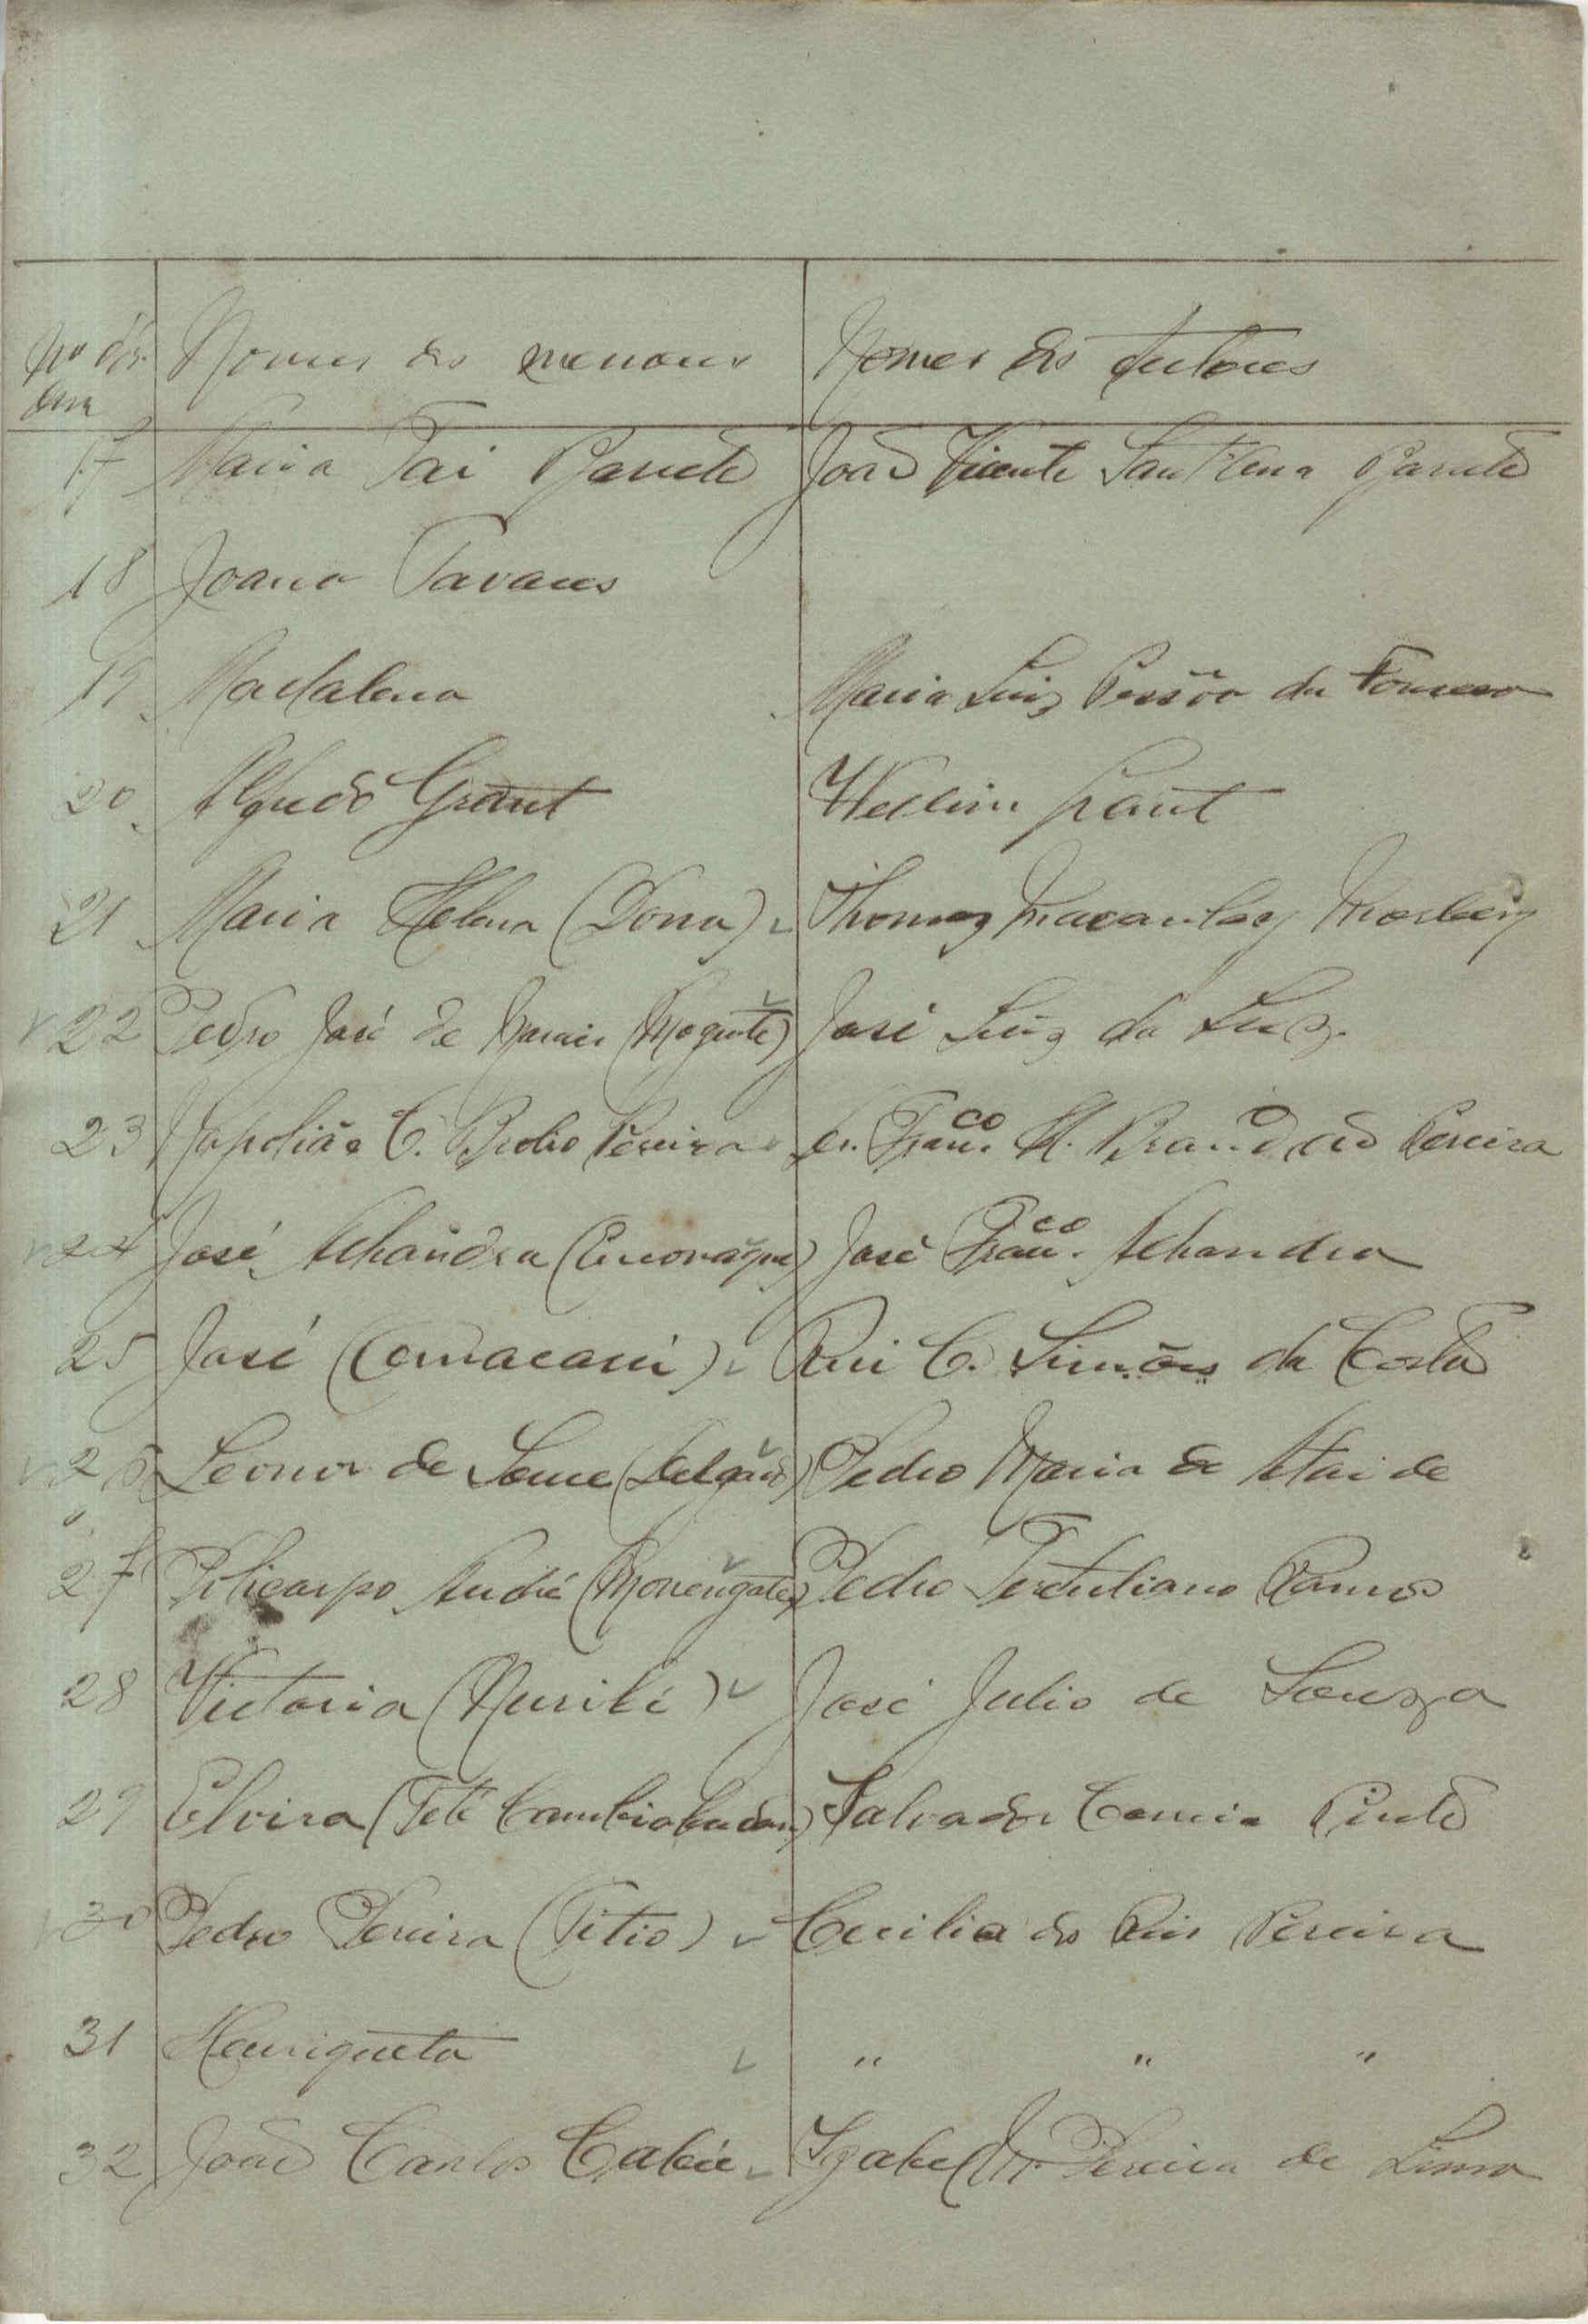 Nº d'or- Nomes dos menores Nomes dos tutores
dem
17 Maria Pai Barreto João Vicente Sant'Anna Barreto
18 Joana Tavares
19 Madalena Maria Luiz Pessôa da Fonseca
20 Alfredo Grant Grant
21 Maria Helena (Dona) Thomaz Macaulay
22 Pedro José de José Luiz da Luz
23 C. Pereira Dr. Franco. H. Brandão Pereira
24 José Alhandra José Franco. Alhandra
25 José Rui C. Simões da Costa
26 Leonor de (Delgado) Pedro Maria de Ataide
27 Policarpo André Pedro Tertuliano Ramos
28 Victoria José Julio de Souza
29 Elvira (Teté Salvador Correia Pinto
30 Pedro Pereira (Titio) Cecilia dos Reis Pereira
31 Henriqueta " " "
32 João Carlos Izabel Mª Pereira de Lima